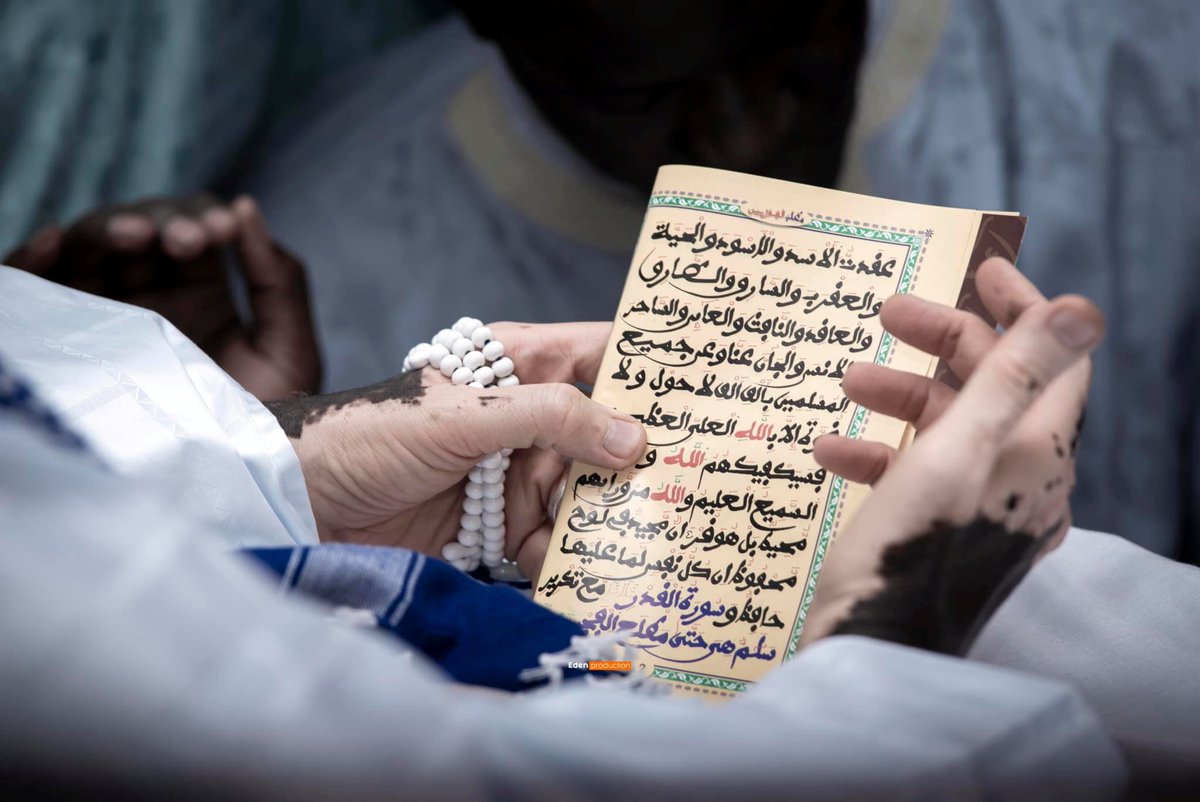 عقدت الاسد والاسود والحية
والعقرب والسارق والطارق
والعاقد والنافث والعامر والساحر
الانس والجان عنا وعن جميع
المسلمين بألف الف لا حول ولا
قوة الا بالله العلي العظيم
فسيكفيكهم الله و
السميع العليم والله من ورائهم
محيط بل هو قرءان مجيد في لوح
محفوظ ان كل نفس لما عليها
حافظ وسورة القدر مع تكرير
سلم هي حتى مطلع الفجر
2
Eden production